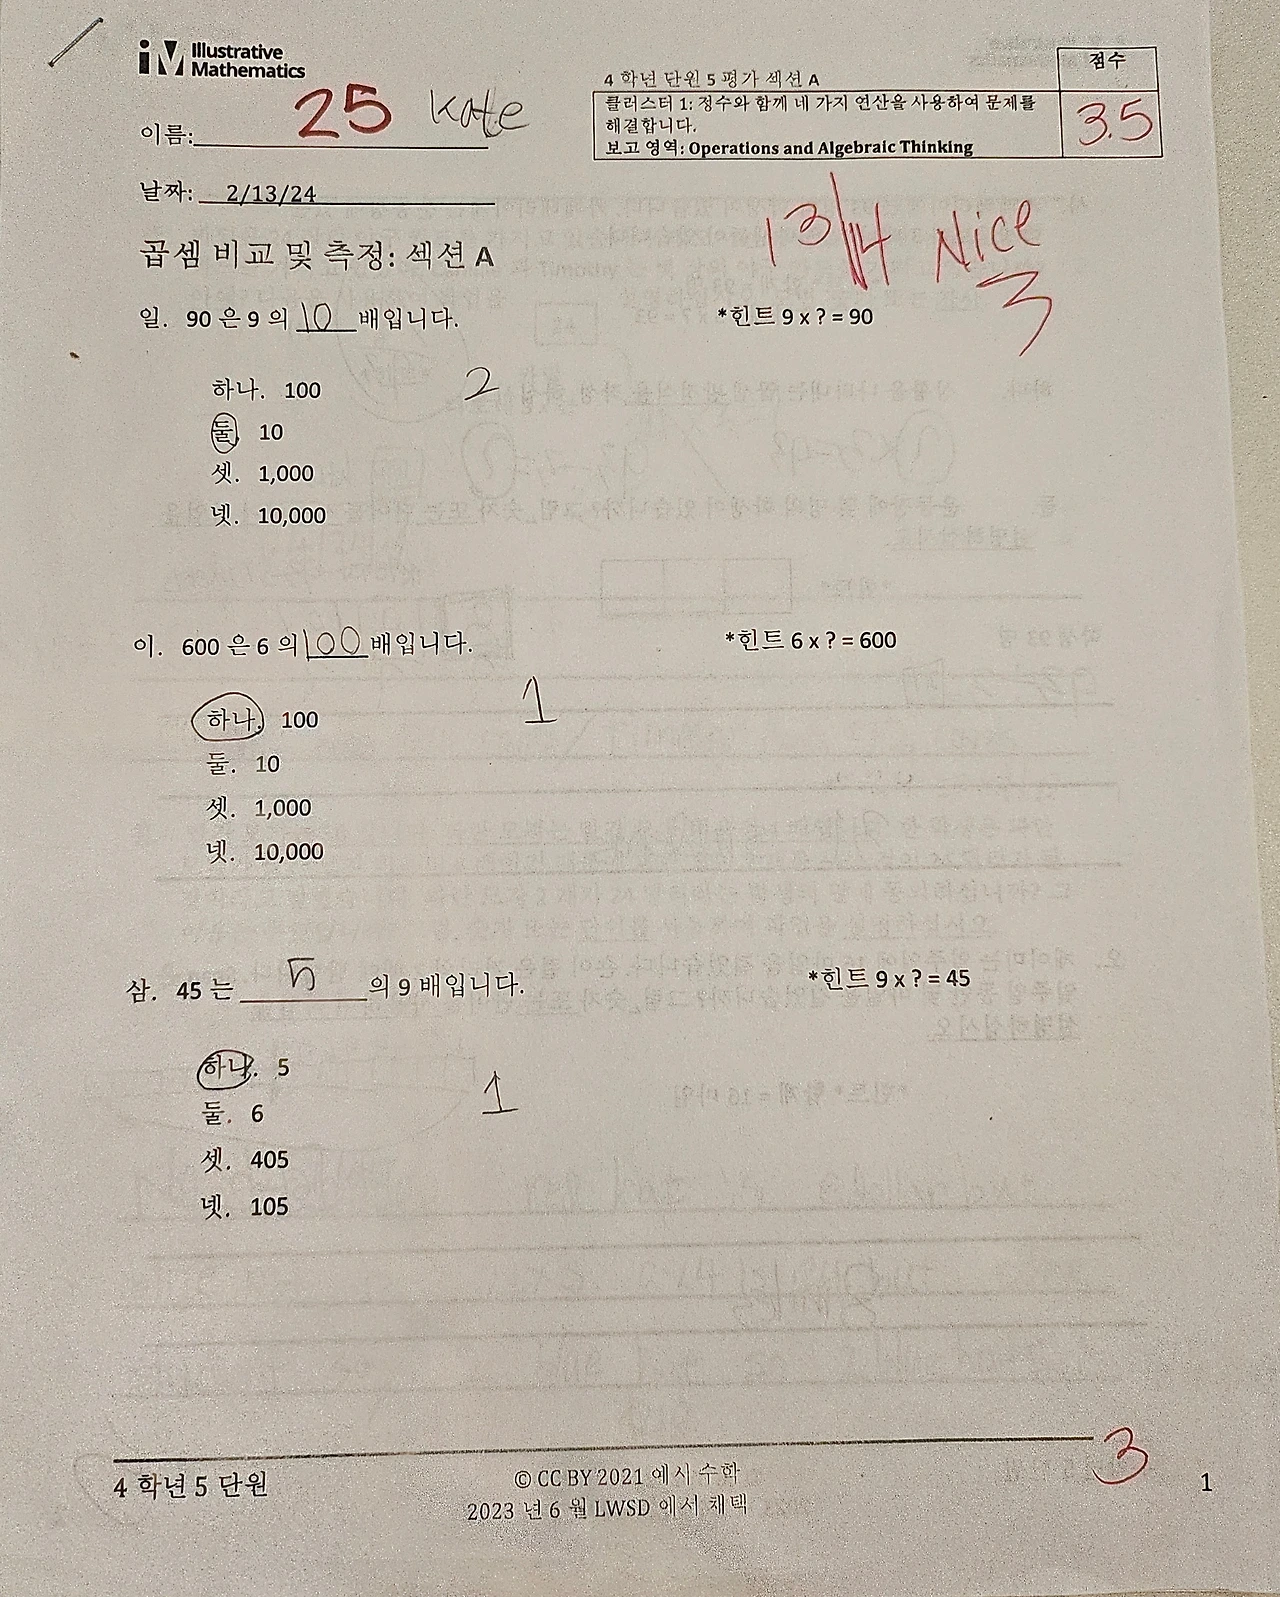 Illustrative
Mathematics
4 학년 단원 5 평가 섹션 A
점수
클러스터 1: 정수와 함께 네 가지 연산을 사용하여 문제를
해결합니다.
보고 영역: Operations and Algebraic Thinking
3.5
25 Kate
이름:
날짜: 2/13/24
13/14 Nice
곱셈 비교 및 측정: 섹션 A
일. 90 은 9 의 10 배입니다. *힌트 9 x ? = 90
하나. 100
2
둘. 10
셋. 1,000
넷. 10,000
이. 600 은 6 의 100 배입니다. *힌트 6 x ? = 600
하나. 100
1
둘. 10
셋. 1,000
넷. 10,000
삼. 45 는 5 의 9 배입니다. *힌트 9 x ? = 45
하나. 5
1
둘. 6
셋. 405
넷. 105
3
4 학년 5 단원
© CC BY 2021 에서 수학
2023 년 6 월 LWSD 에서 채택
1